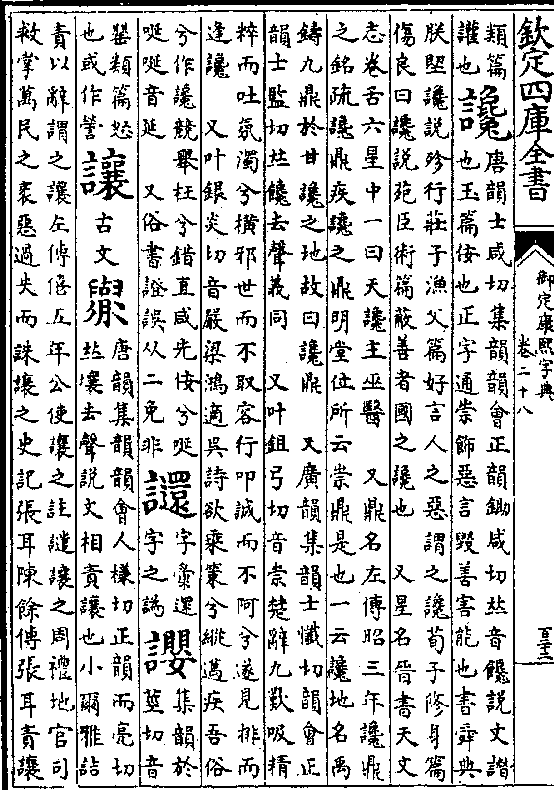 欽定四庫全書
御定康熙字典
卷二十八
類篇
讙也
讒
唐韻士咸切集韻韻會正韻鋤咸切𠀤音饞說文譖
也玉篇佞也正字通崇飾惡言毀善害能也書舜典
朕堲讒說殄行莊子漁父篇好言人之惡謂之讒荀子修身篇
傷良曰讒說苑臣術篇蔽善者國之讒也 又星名晉書天文
志卷舌六星中一曰天讒主巫醫 又鼎名左傳昭三年讒鼎
之銘疏讒鼎疾讒之鼎明堂位所云崇鼎是也一云讒地名禹
鑄九鼎於甘讒之地故曰讒鼎 又廣韻集韻士懺切韻會正
韻士監切𠀤饞去聲義同 又叶鉏弓切音崇楚辭九歎吸精
粹而吐氛濁兮橫邪世而不取容行叩誠而不阿兮遂見排而
逢讒 又叶銀炎切音嚴梁鴻適吳詩欲乘策兮縱邁疾吾俗
兮作讒競舉枉兮錯直咸先佞兮唌
唌唌音延 又俗書證誤从二免非
字彙還
字之譌
集韻於
莖切音
罌類篇怒
也或作䓨
讓
古文
唐韻集韻韻會人樣切正韻而亮切
𠀤壤去聲說文相責讓也小爾雅詰
責以辭謂之讓左傳僖五年公使讓之註譴讓之周禮地官司
救掌萬民之衺惡過失而誅壤之史記張耳陳餘傳張耳責讓